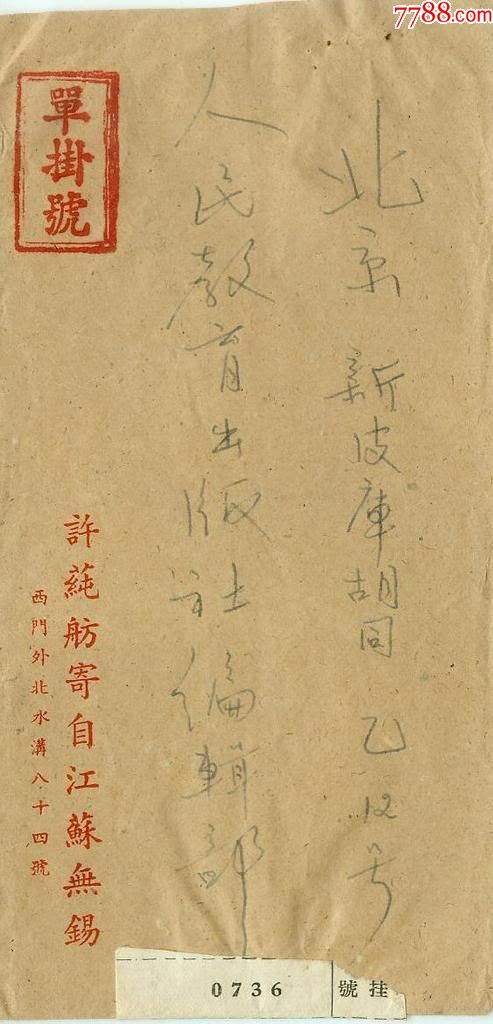 7788.com
北京 新皮庫胡同 乙12号
人民教育出版社编輯部
單掛號
許蒓舫寄自江蘇無錫
西門外北水溝八十四號
0736 挂號